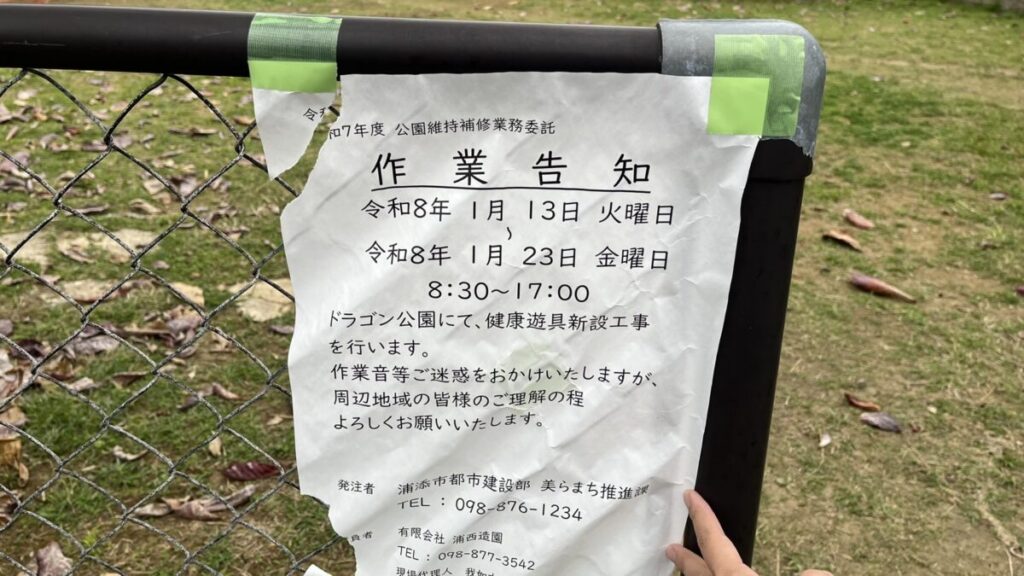 令和7年度 公園維持補修業務委託
作業告知
令和8年 1月 13日 火曜日
～
令和8年 1月 23日 金曜日
8:30～17:00
ドラゴン公園にて、健康遊具新設工事
を行います。
作業音等ご迷惑をおかけいたしますが、
周辺地域の皆様のご理解の程
よろしくお願いいたします。
発注者 浦添市都市建設部 美らまち推進課
TEL : 098-876-1234
負者 有限会社 浦西造園
TEL : 098-877-3542
現場代理人